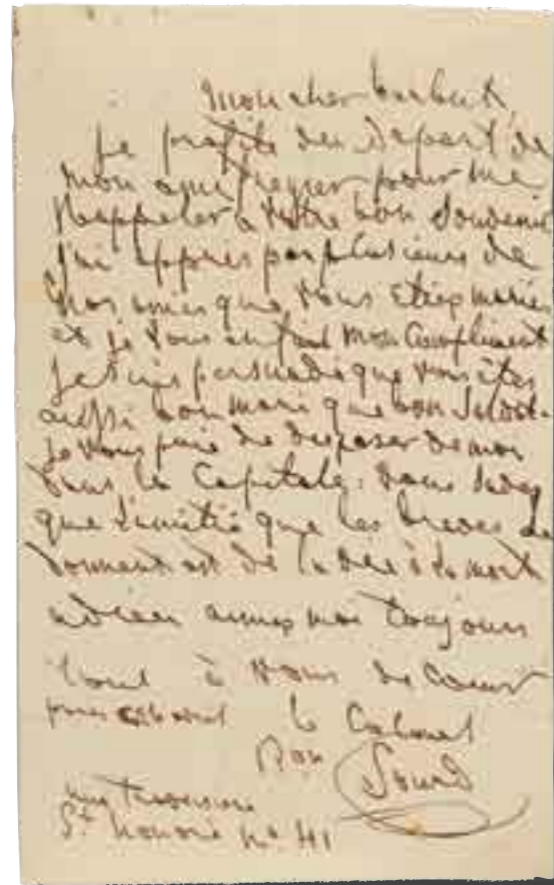 Mon cher
Je profite du Départ de
mon ami Regnier pour me
Rappeler a votre bon Souvenir
J'ai appris par plusieurs de
nos amis que vous etiez marié
et je vous en fait mon Compliment
Je suis persuadé que vous êtes
aussi bon mari que bon Soldat.
Je vous prie de disposer de moi
dans la Capitale. vous savez
que l'amitié que les braves se
donnent est de la vie à la mort
adieu aimez moi toujours
tout à vous de Coeur
le Colonel
Bon Sourd
rue traversiere
St honoré no 41